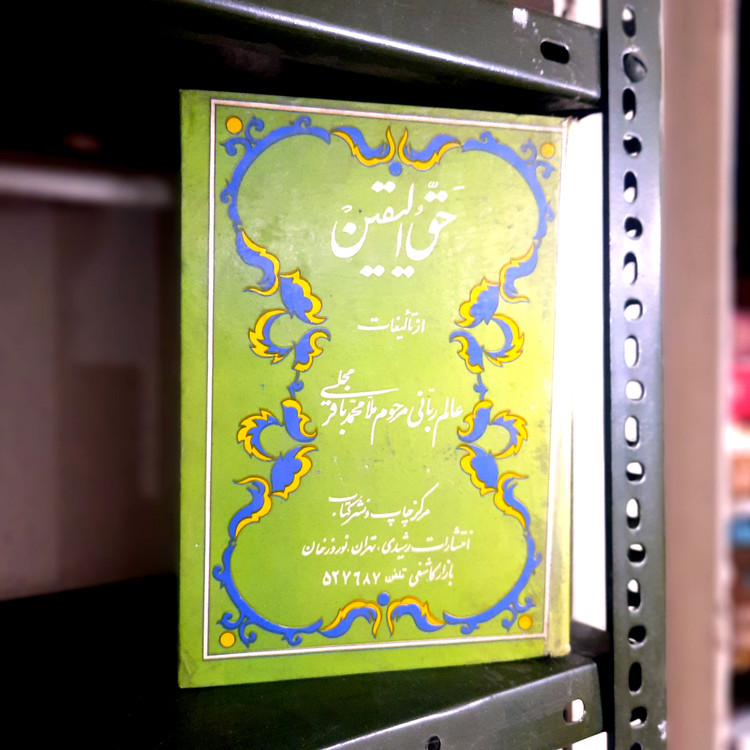 حَقُّ الیَقینْ
از تألیفات
عالم ربّانی مرحوم ملا محمّد باقر مجلسی
مرکز چاپ و نشر کتاب
انتشارات رشیدی، تهران، نوروزخان
بازار کاشفی تلفن ۵۲۷۶۸۷